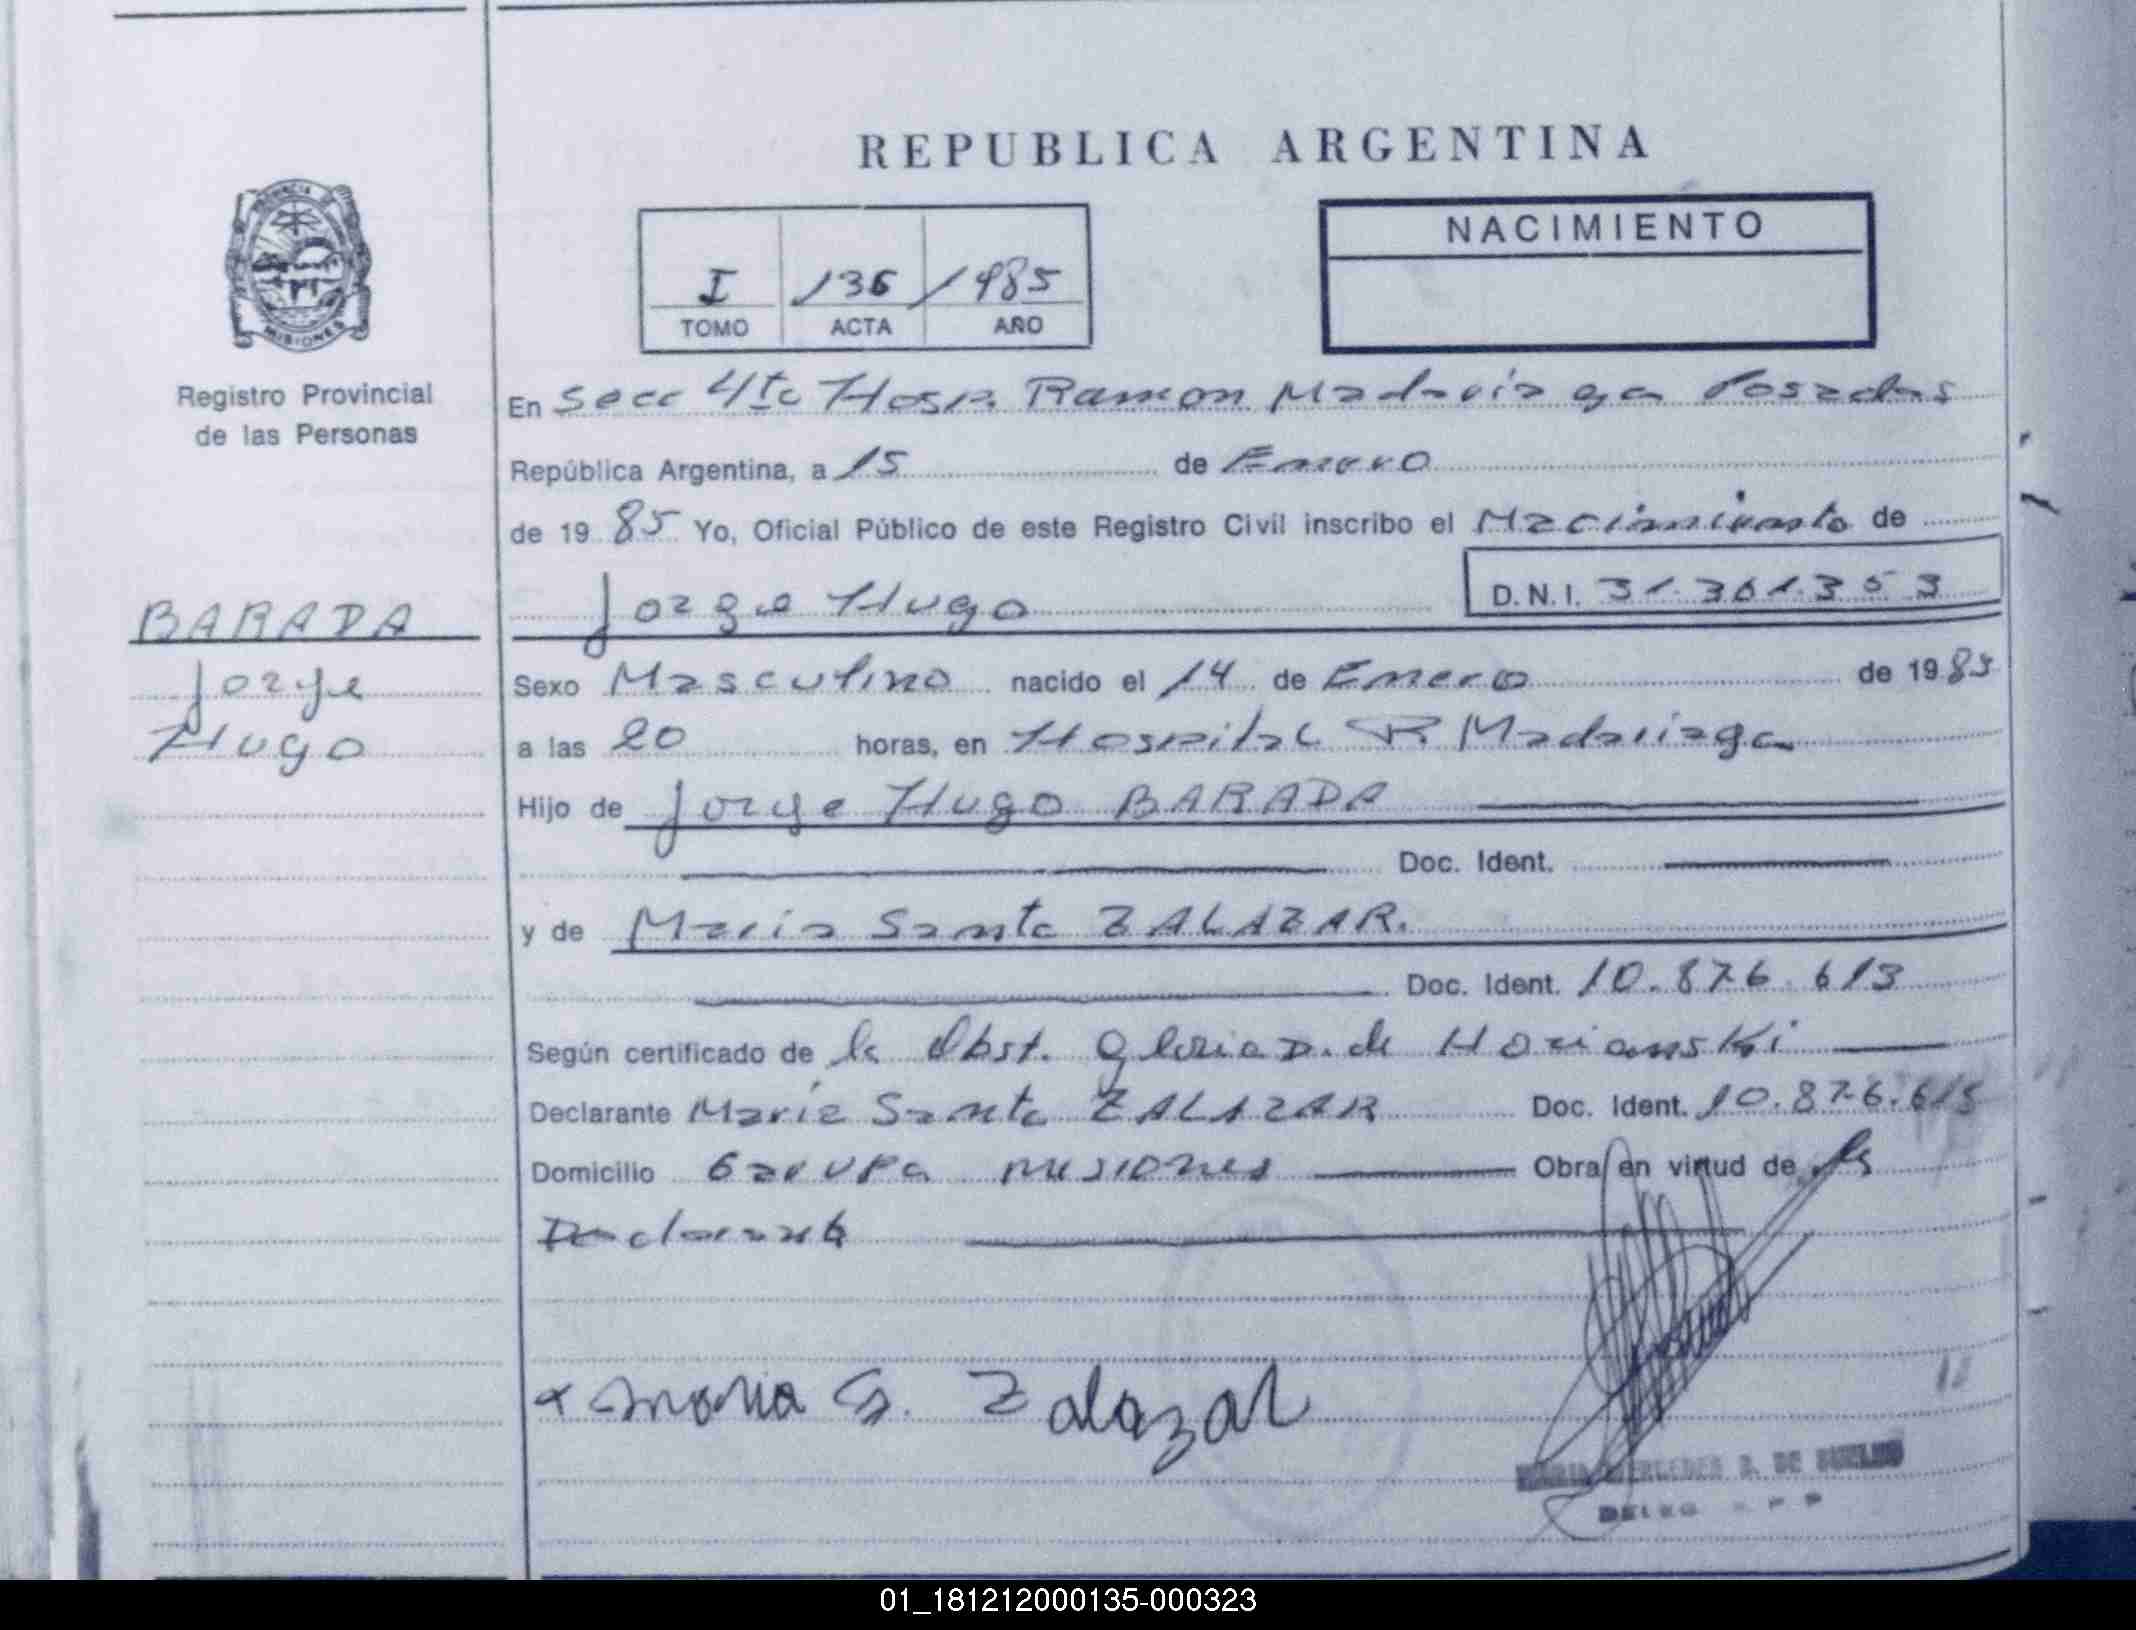 REPUBLICA ARGENTINA
PROVINCIA DE
MISIONES
Registro Provincial
de las Personas
I 136 1985
TOMO ACTA AÑO
NACIMIENTO
En Secc 4ta Hosp. Ramon Madariaga Posadas
República Argentina, a 15 de Enero
de 19 85 Yo, Oficial Público de este Registro Civil inscribo el Nacimiento de
Jorge Hugo D.N.I. 31.301.353
BARADA
Jorge
Hugo
Sexo Masculino nacido el 14 de Enero de 19 85
a las 20 horas, en Hospital R. Madariaga
Hijo de Jorge Hugo BARADA
Doc. Ident.
y de Maria Santa ZALAZAR.
Doc. Ident. 10.876.613
Según certificado de la Obst. Gloria D. de Horianski
Declarante María Santa ZALAZAR Doc. Ident. 10.876.613
Domicilio Garupa misiones Obra en virtud de la
Declarante
x maria S. Zalazar
MERCEDES DE
01_181212000135-000323